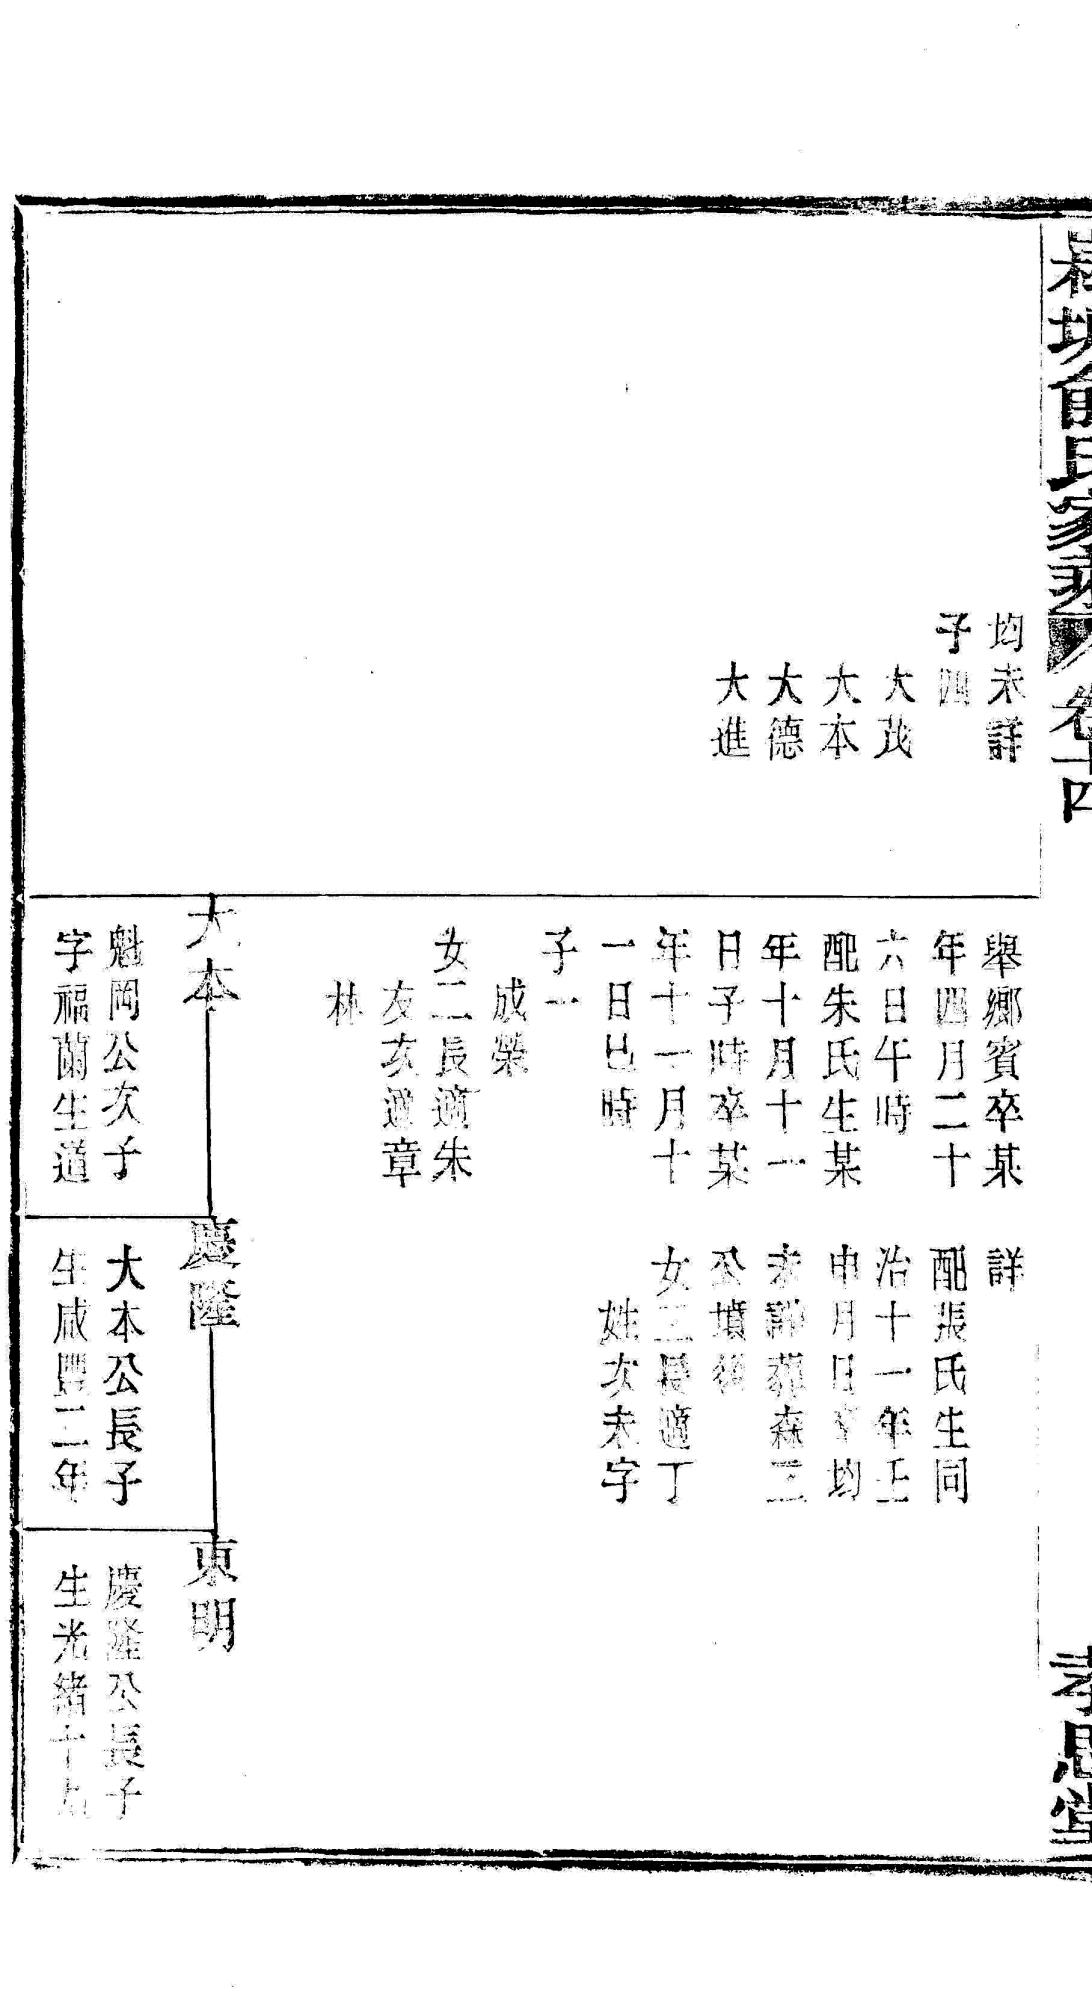 俞氏家乘 卷十四
孝思堂
均未詳
子四
大茂
大本
大德
大進
舉鄉賓卒某
年四月二十
六日午時
配朱氏生某
年十月十一
日子時卒某
年十一月十
一日巳時
子一
成榮
女二長適朱
友次適章
林
大本
魁岡公次子
字福蘭生道
詳
配張氏生同
治十一年壬
申月日卒均
未詳葬森二
公墳後
女二長適丁
姓次未字
慶隆
大本公長子
生咸豐二年
東明
慶隆公長子
生光緒十